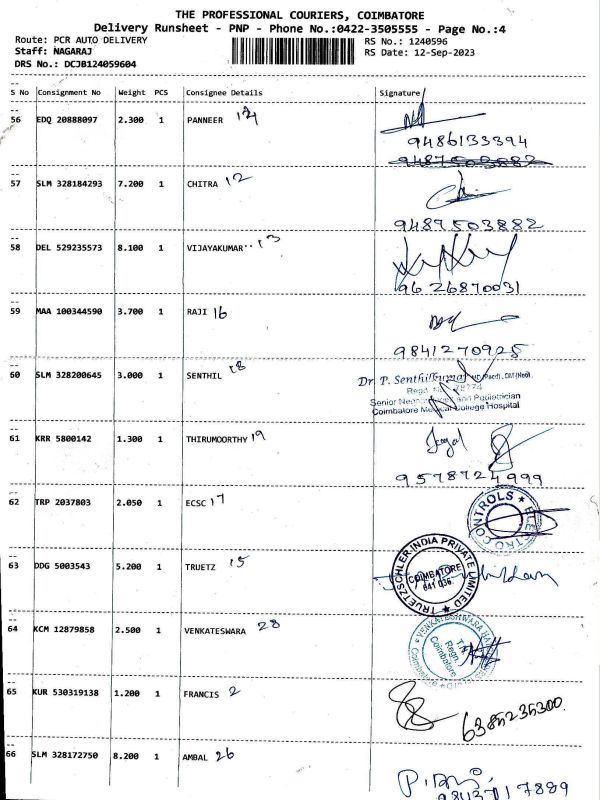 THE PROFESSIONAL COURIERS, COIMBATORE
Delivery Runsheet - PNP - Phone No.:0422-3505555 - Page No.:4
Route: PCR AUTO DELIVERY
Staff: NAGARAJ
DRS No.: DCJB124059604
RS No.: 1240596
RS Date: 12-Sep-2023
S No Consignment No Weight PCS Consignee Details Signature
56 EDQ 20888097 2.300 1 PANNEER
9486133394
9487503882
57 SLM 328184293 7.200 1 CHITRA 12
9487503882
58 DEL 529235573 8.100 1 VIJAYAKUMAR·· 13
9626870031
59 MAA 100344590 3.700 1 RAJI 16
9841270925
60 SLM 328200645 3.000 1 SENTHIL 18
Dr. P. Senthilkumar MD (Paed), DM (Neo)
Senior Neonatologist and Pediatrician
Coimbatore Medical College Hospital
61 KRR 5800142 1.300 1 THIRUMOORTHY 19
9578724999
62 TRP 2037803 2.050 1 ECSC 17
ELECTRO CONTROLS
63 DDG 5003543 5.200 1 TRUETZ 15
TRUETZSCHLER INDIA PRIVATE LIMITED
COIMBATORE
641 036.
64 KCM 12879858 2.500 1 VENKATESWARA 28
65 KUR 530319138 1.200 1 FRANCIS 2
6385235300.
66 SLM 328172750 8.200 1 AMBAL 26